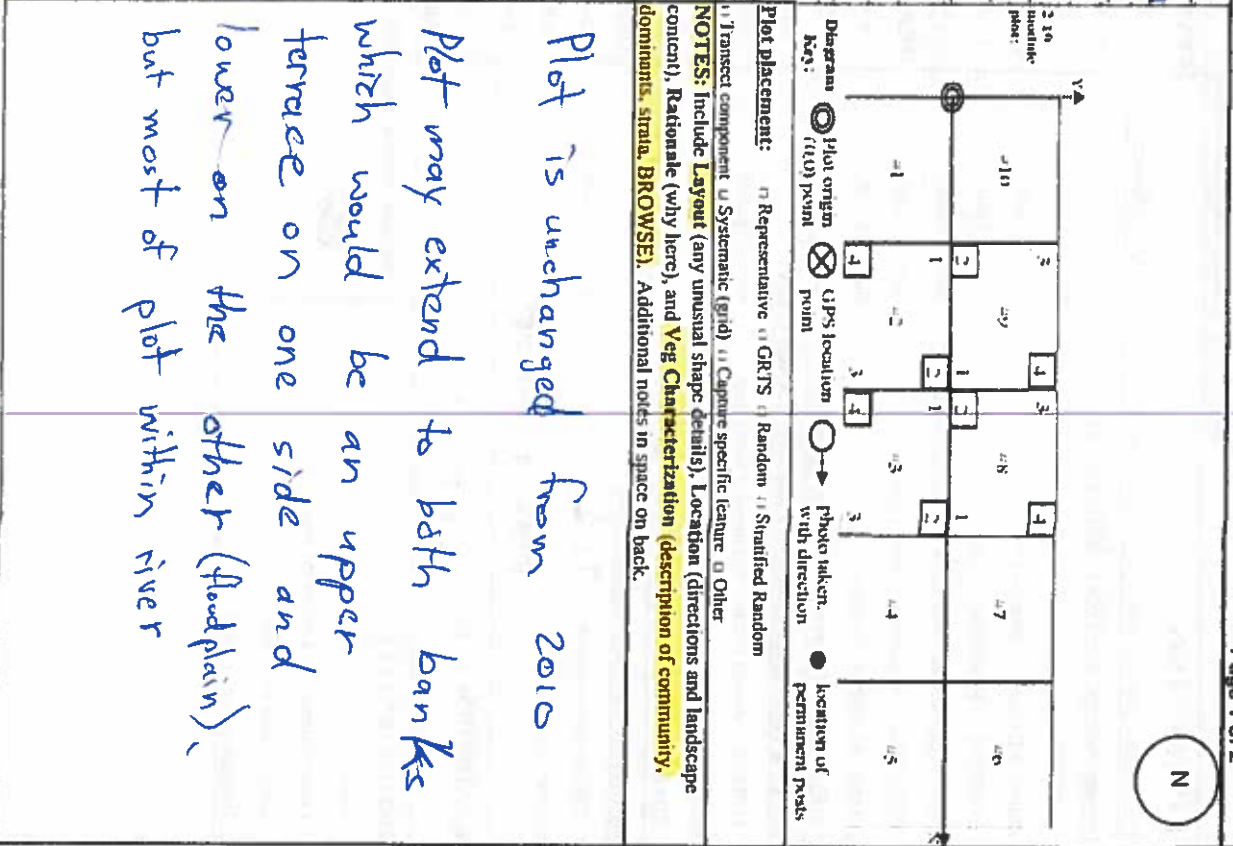 Page 1 of 2
N
2 10
module
plot:
Y
#10 #9 #8 #7 #6
#1 #2 #3 #4 #5
3 4 3 4
2 1 2 1
1 2 1 2
4 3 4 3
Diagram Key:
Plot origin (0,0) point
GPS location point
photo taken. with direction
location of permanent posts
Plot placement: Representative GRTS Random Stratified Random
Transect component Systematic (grid) Capture specific feature Other
NOTES: Include Layout (any unusual shape details), Location (directions and landscape
content), Rationale (why here), and Veg Characterization (description of community,
dominants, strata, BROWSE). Additional notes in space on back.
Plot is unchanged from 2010
Plot may extend to both banks
which would be an upper
terrace on one side and
lower on the other (floodplain),
but most of plot within river